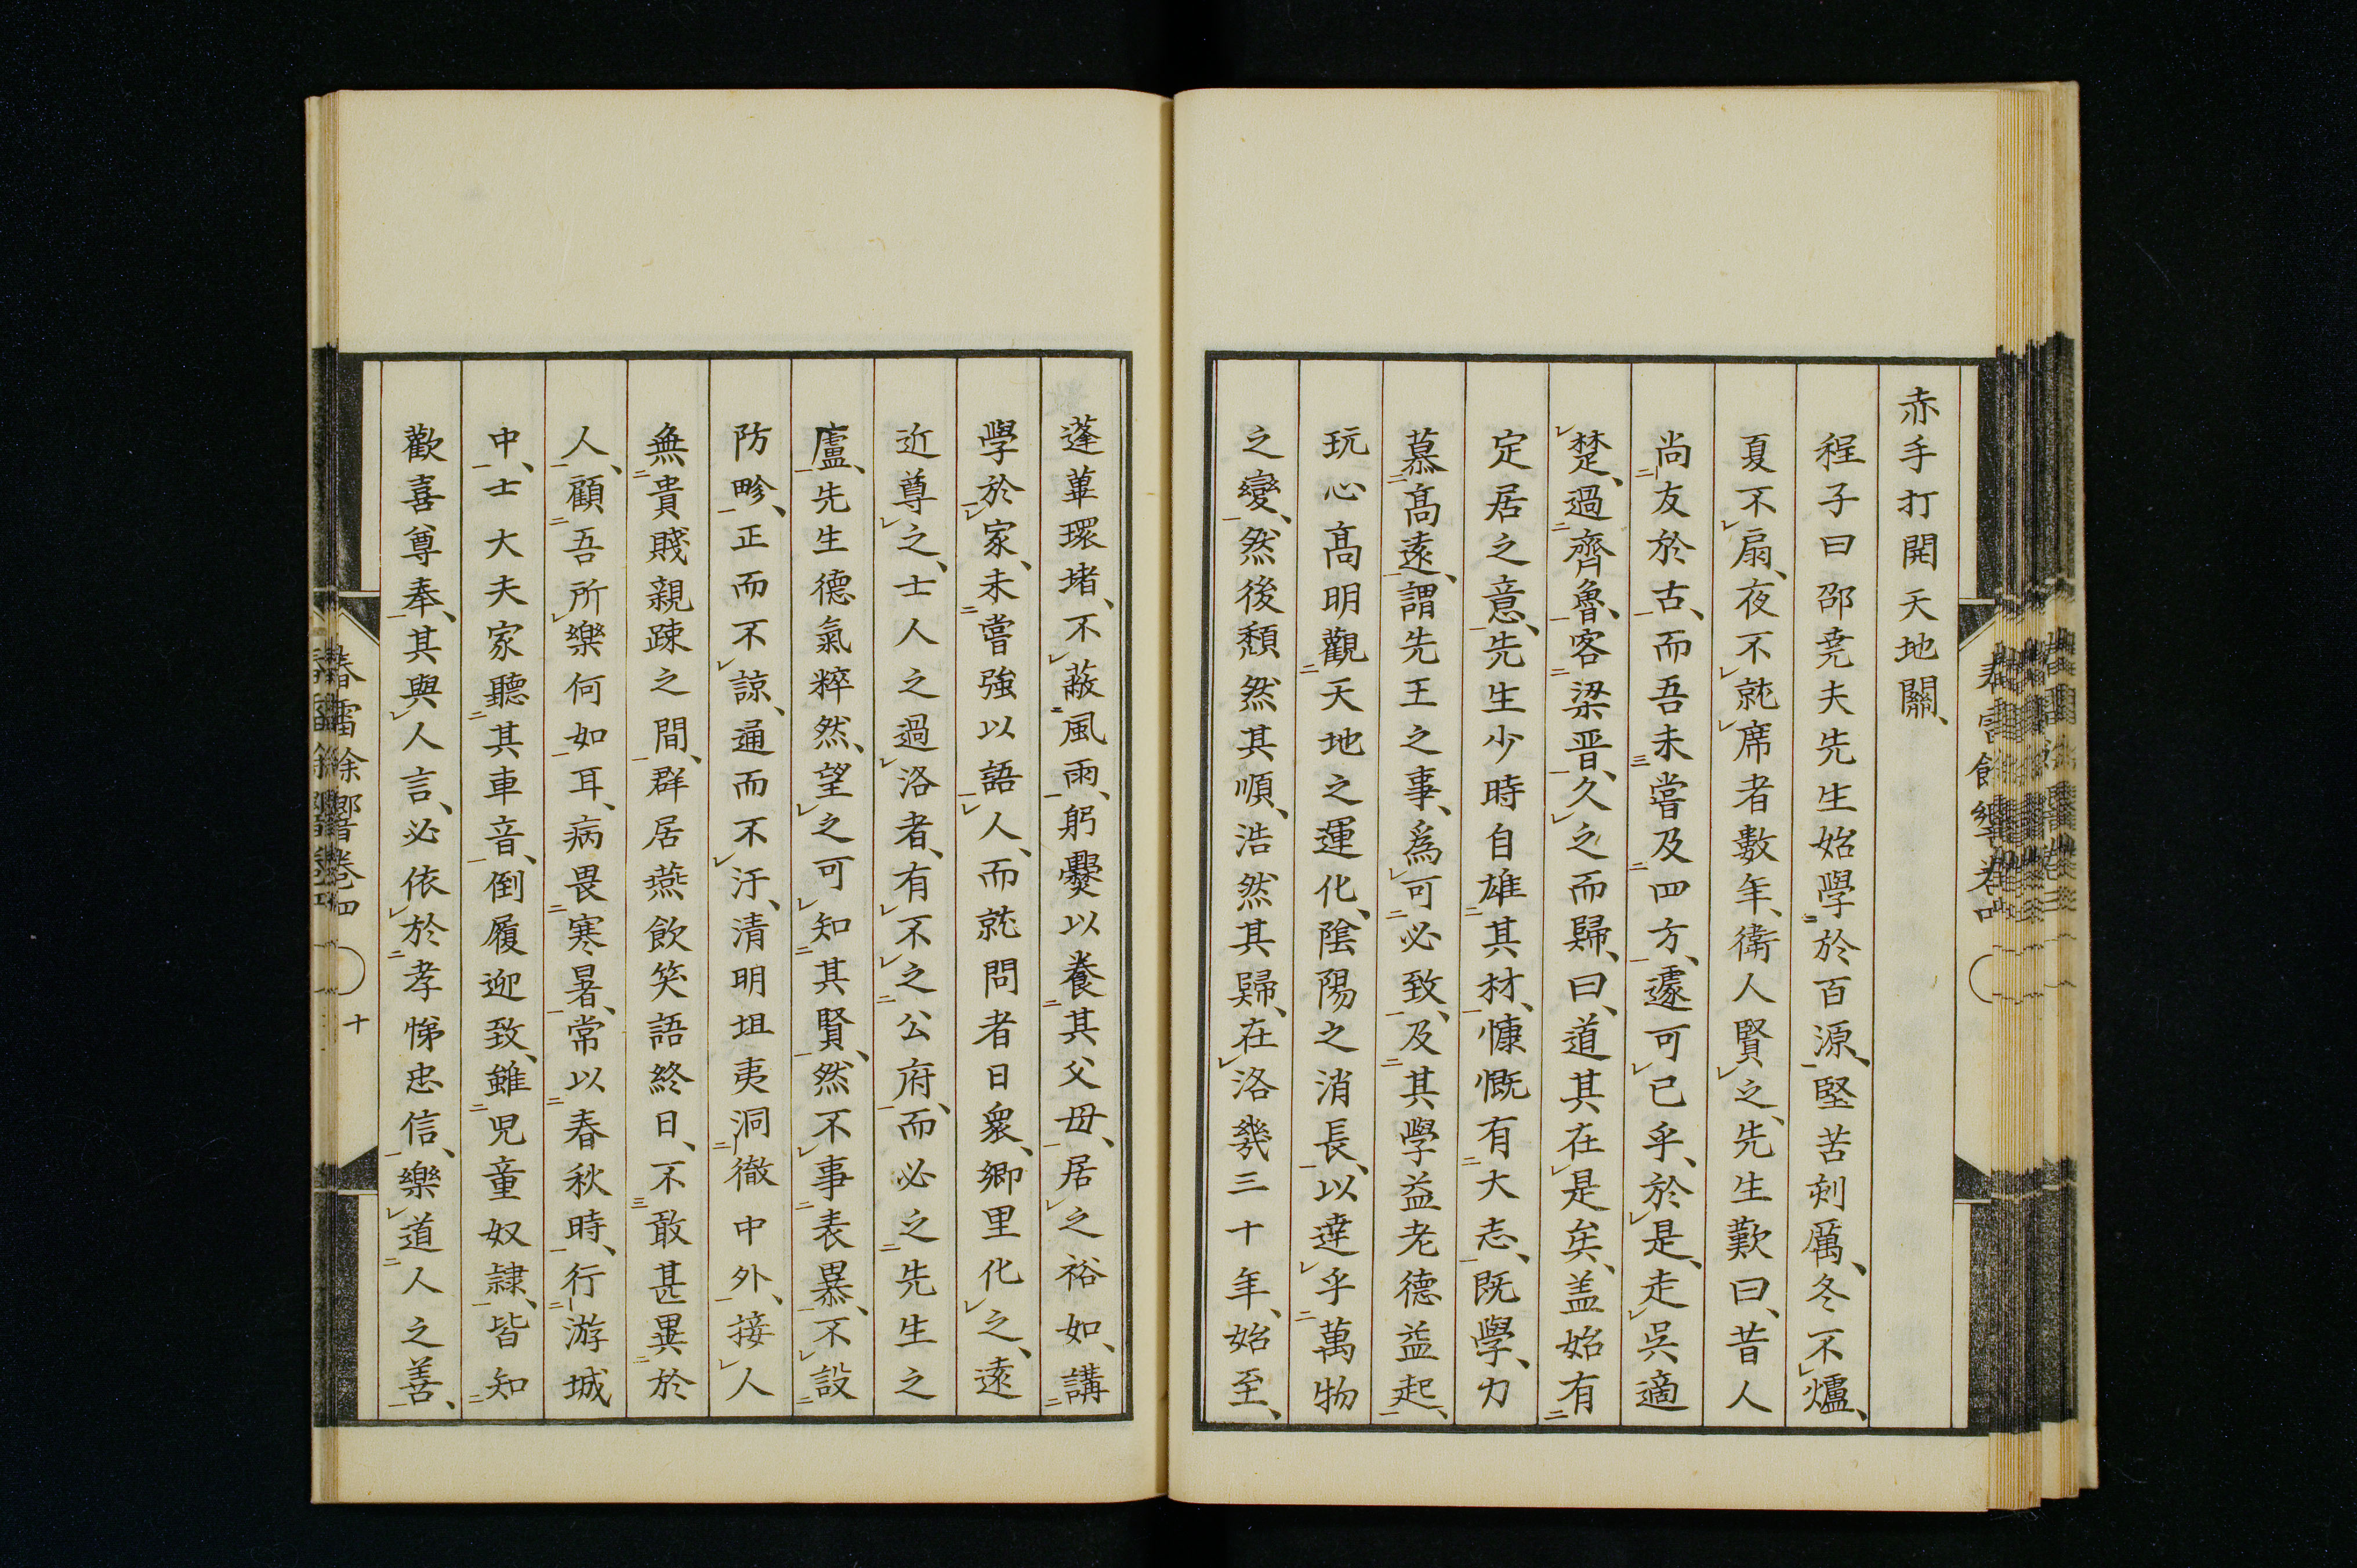 赤手打開天地關、
程子曰邵尭夫先生始學於百源、堅苦刻厲、冬不爐、
夏不扇、夜不就席者數年、衛人賢之、先生歎曰、昔人
尚友於古、而吾未嘗及四方、遽可已乎、於是、走吳適
楚、過齊魯、客梁晋、久之而歸、曰、道其在是矣、盖始有
定居之意、先生少時自雄其材、慷慨有大志、既學、力
慕高遠、謂先王之事、爲可必致、及其學益老德益起、
玩心高明觀天地之運化、陰陽之消長、以達乎萬物
之變、然後頽然其順、浩然其歸、在洛幾三十年、始至、
蓬蓽環堵、不蔽風雨、躬爨以養其父母、居之裕如、講
學於家、未嘗強以語人、而就問者日衆、鄉里化之、遠
近尊之、士人之過洛者、有不之公府、而必之先生之
廬、先生德氣粹然、望之可知其賢、然不事表暴、不設
防畛、正而不諒、通而不汙、清明坦夷洞徹中外、接人
無貴賤親踈之間、群居燕飲笑語終日、不敢甚異於
人、顧吾所樂何如耳、病畏寒暑、常以春秋時、行游城
中、士大夫家聽其車音、倒履迎致、雖児童奴隸、皆知
歡喜尊奉、其與人言、必依於孝悌忠信、樂道人之善、
春雷餘響卷四
十